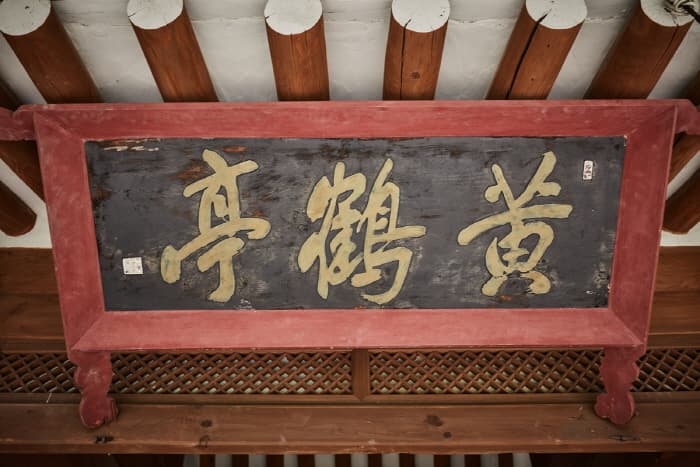 黃鶴亭